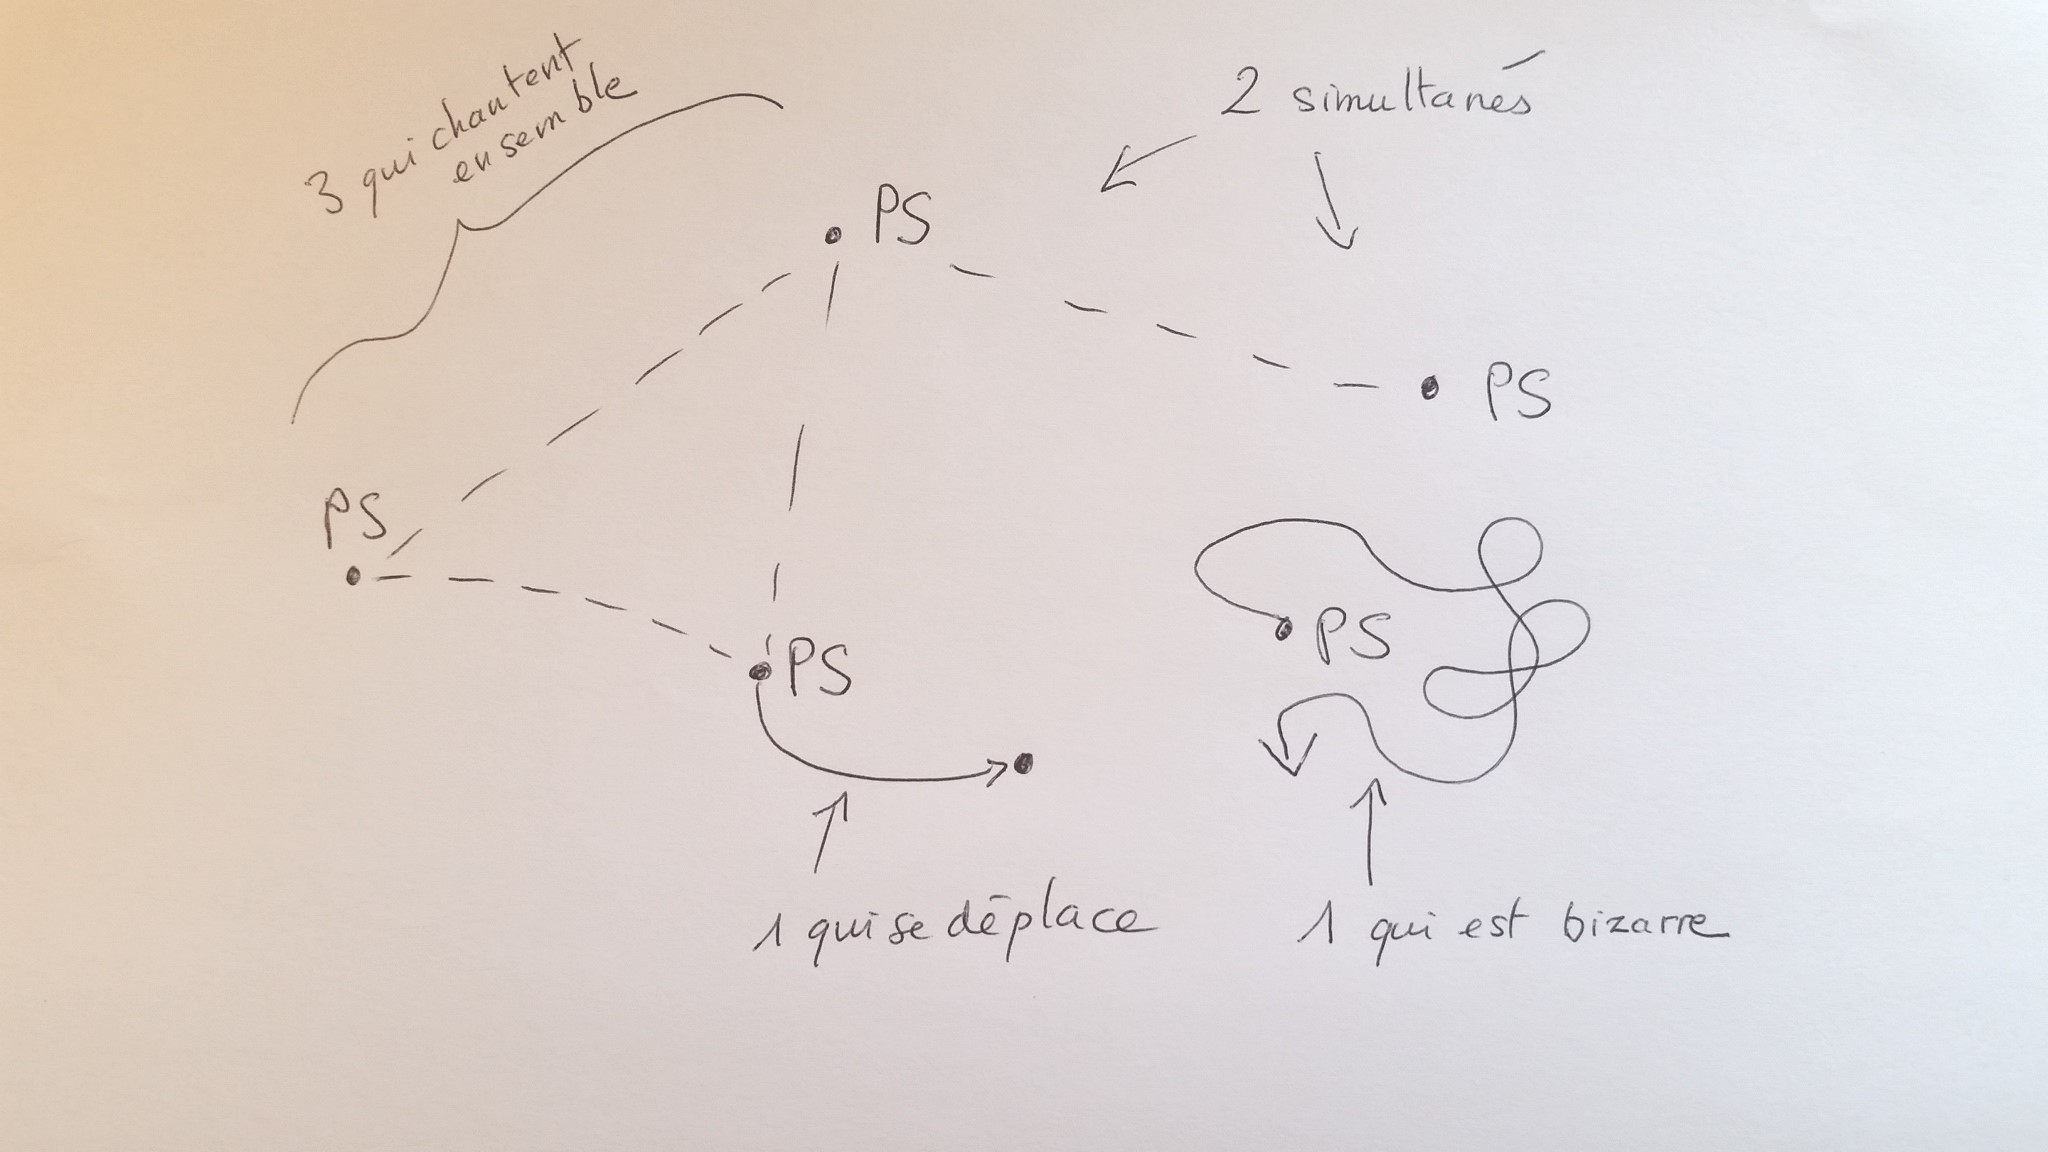 3 qui chantent
ensemble
2 simultanés
PS
PS
PS
PS
PS
1 qui se déplace
1 qui est bizarre